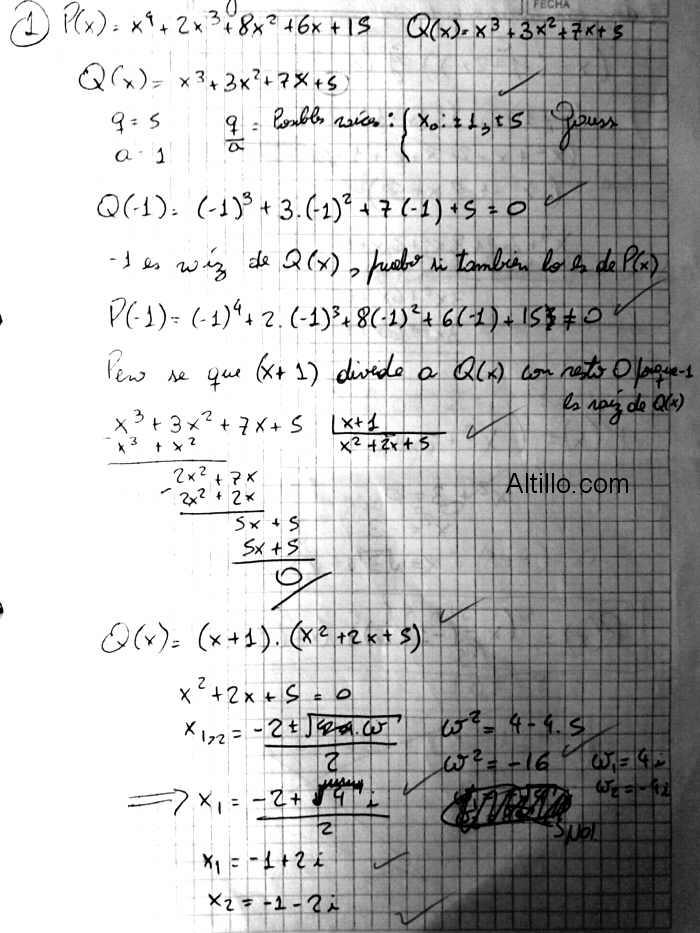 FECHA
① P(x) = x⁴ + 2x³ + 8x² + 6x + 15 Q(x) = x³ + 3x² + 7x + 5
Q(x) = x³ + 3x² + 7x + 5
q = 5 q/a = Posibles raíces: { x₀: ±1, ±5 Gauss
a = 1
Q(-1) = (-1)³ + 3.(-1)² + 7(-1) + 5 = 0
-1 es raíz de Q(x), pruebo si también lo es de P(x)
P(-1) = (-1)⁴ + 2.(-1)³ + 8(-1)² + 6(-1) + 15 ≠ 0
Pero se que (x+1) divide a Q(x) con resto 0 porque -1
es raíz de Q(x)
x³ + 3x² + 7x + 5 | x+1
- x³ + x² x² + 2x + 5
2x² + 7x
- 2x² + 2x
Altillo.com
5x + 5
5x + 5
0
Q(x) = (x+1).(x² + 2x + 5)
x² + 2x + 5 = 0
x₁,₂ = -2 ± ω / 2 ω² = 4 - 4.5
ω² = -16 ω₁ = 4i
ω₂ = -4i
⇒ x₁ = -2 + 4i / 2
x₁ = -1 + 2i
x₂ = -1 - 2i